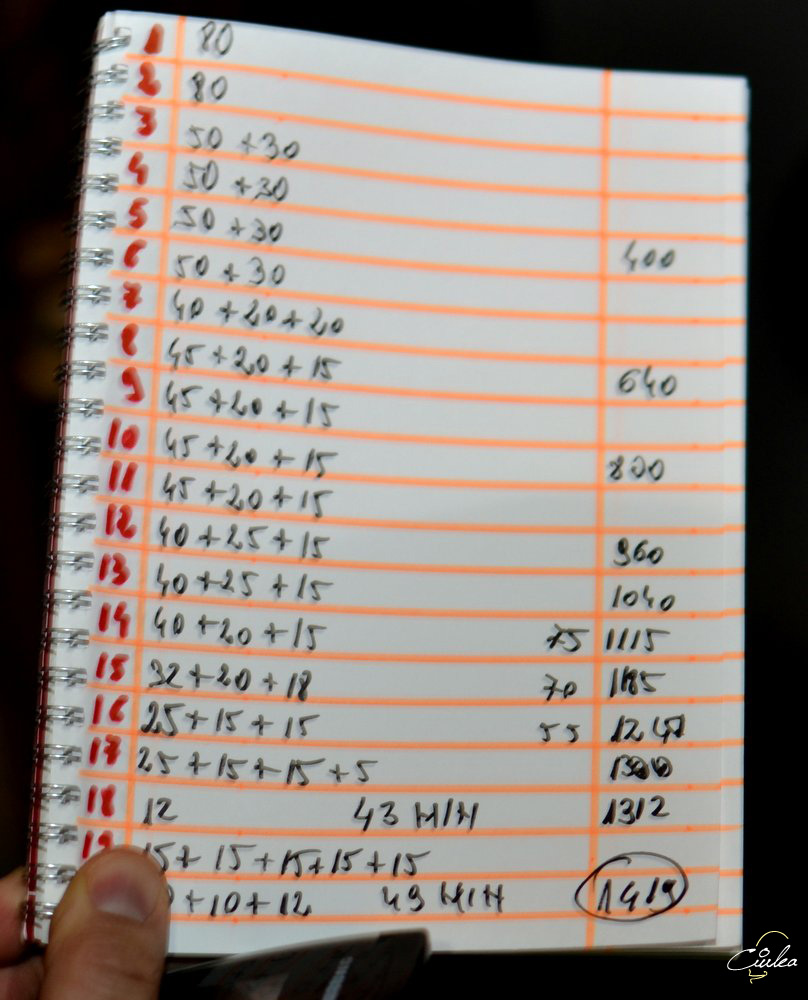 1 80
2 80
3 50 +30
4 50 +30
5 50 +30 400
6 50 +30
7 40 +20+20
8 45+20 +15 640
9 45+20 +15
10 45+20 +15 800
11 45+20+15
12 40+25+15 960
13 40+25+15 1040
14 40+20+15 75 1115
15 32+20+18 70 1185
16 25+15+15 55
17 25+15+15+5 1300
18 12 43 MIH 1312
19 15+ 15+15+15+15
+10+12 49 MIH 1419
Ciulea